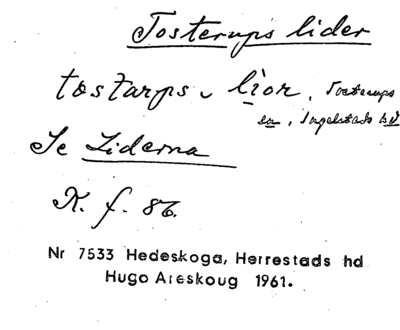 Tosterups lider
tostarps lìor, Tosterups
sn, Ingelstads hd
Se Liderna
K. f. 86.
Nr 7533 Hedeskoga, Herrestads hd
Hugo Areskoug 1961.